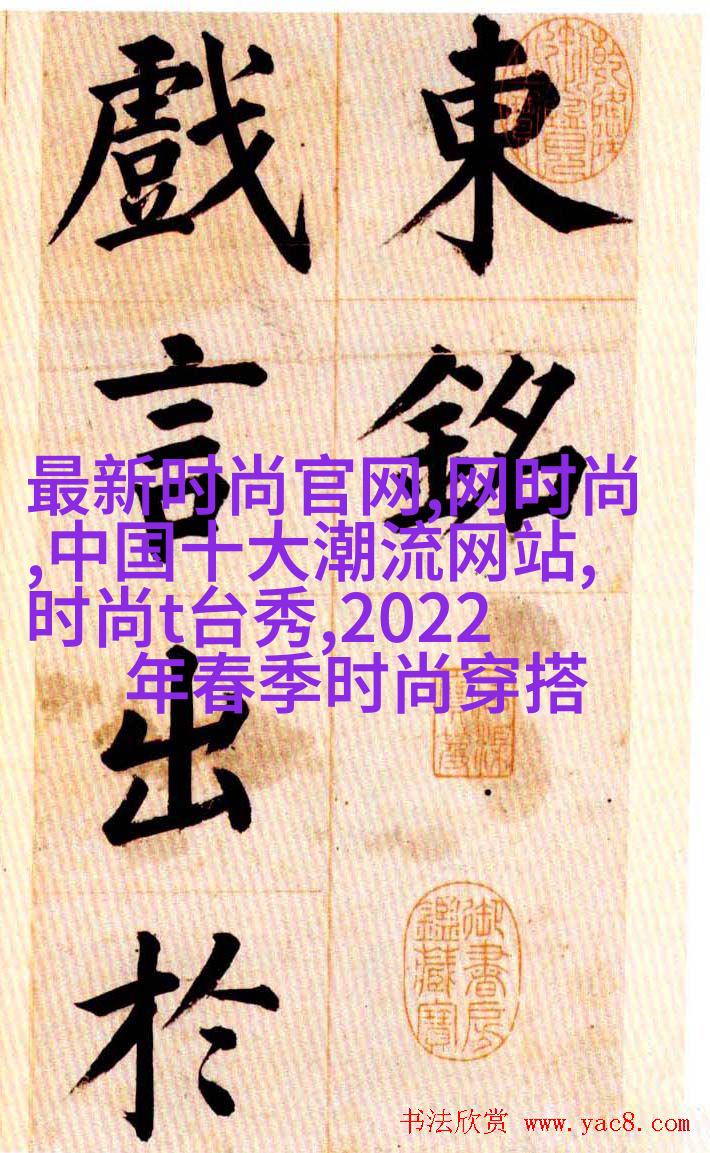 東銘
戲言出於
最新时尚官网,网时尚
,中国十大潮流网站,
时尚t台秀,2022
年春季时尚穿搭
御書房
鑑藏寶
书法欣赏 www.yac8.com